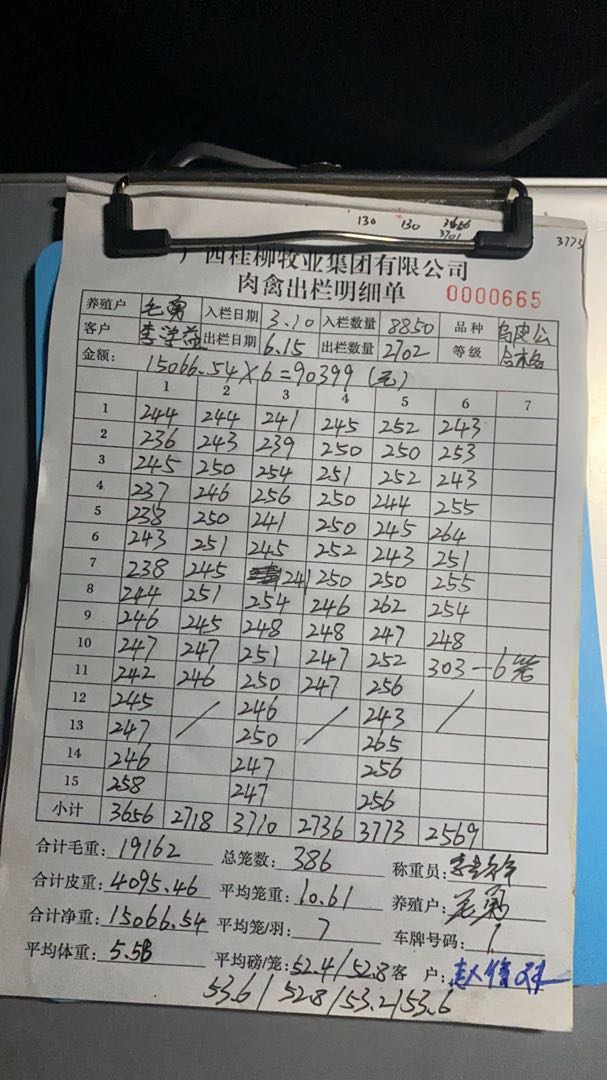 130 130 3656
3701
3773
广西桂柳牧业集团有限公司
肉禽出栏明细单 0000665
养殖户 毛勇 入栏日期 3.10 入栏数量 8850 品种 乌皮公
客户 出栏日期 6.15 出栏数量 2702 等级 合格
金额: 15066.54×6=90399(元)
1 2 3 4 5 6 7
1 244 244 241 245 252 243
2 236 243 239 250 250 253
3 245 250 254 251 252 243
4 237 246 256 250 244 255
5 238 250 241 250 245 264
6 243 251 245 252 243 251
7 238 245 241 250 250 255
8 244 251 254 246 262 254
9 246 245 248 248 247 248
10 247 247 251 247 252 303-6笼
11 242 246 250 247 256
12 245 / 246 / 243 /
13 247 250 265
14 246 247 256
15 258 247 256
小计 3656 2718 3710 2736 3773 2569
合计毛重: 19162 总笼数: 386 称重员:
合计皮重: 4095.46 平均笼重: 10.61 养殖户: 毛勇
合计净重: 15066.54 平均笼/羽: 7 车牌号码: 1
平均体重: 5.58 平均磅/笼: 52.4/52.8 客 户:
53.6/52.8/53.2/53.6